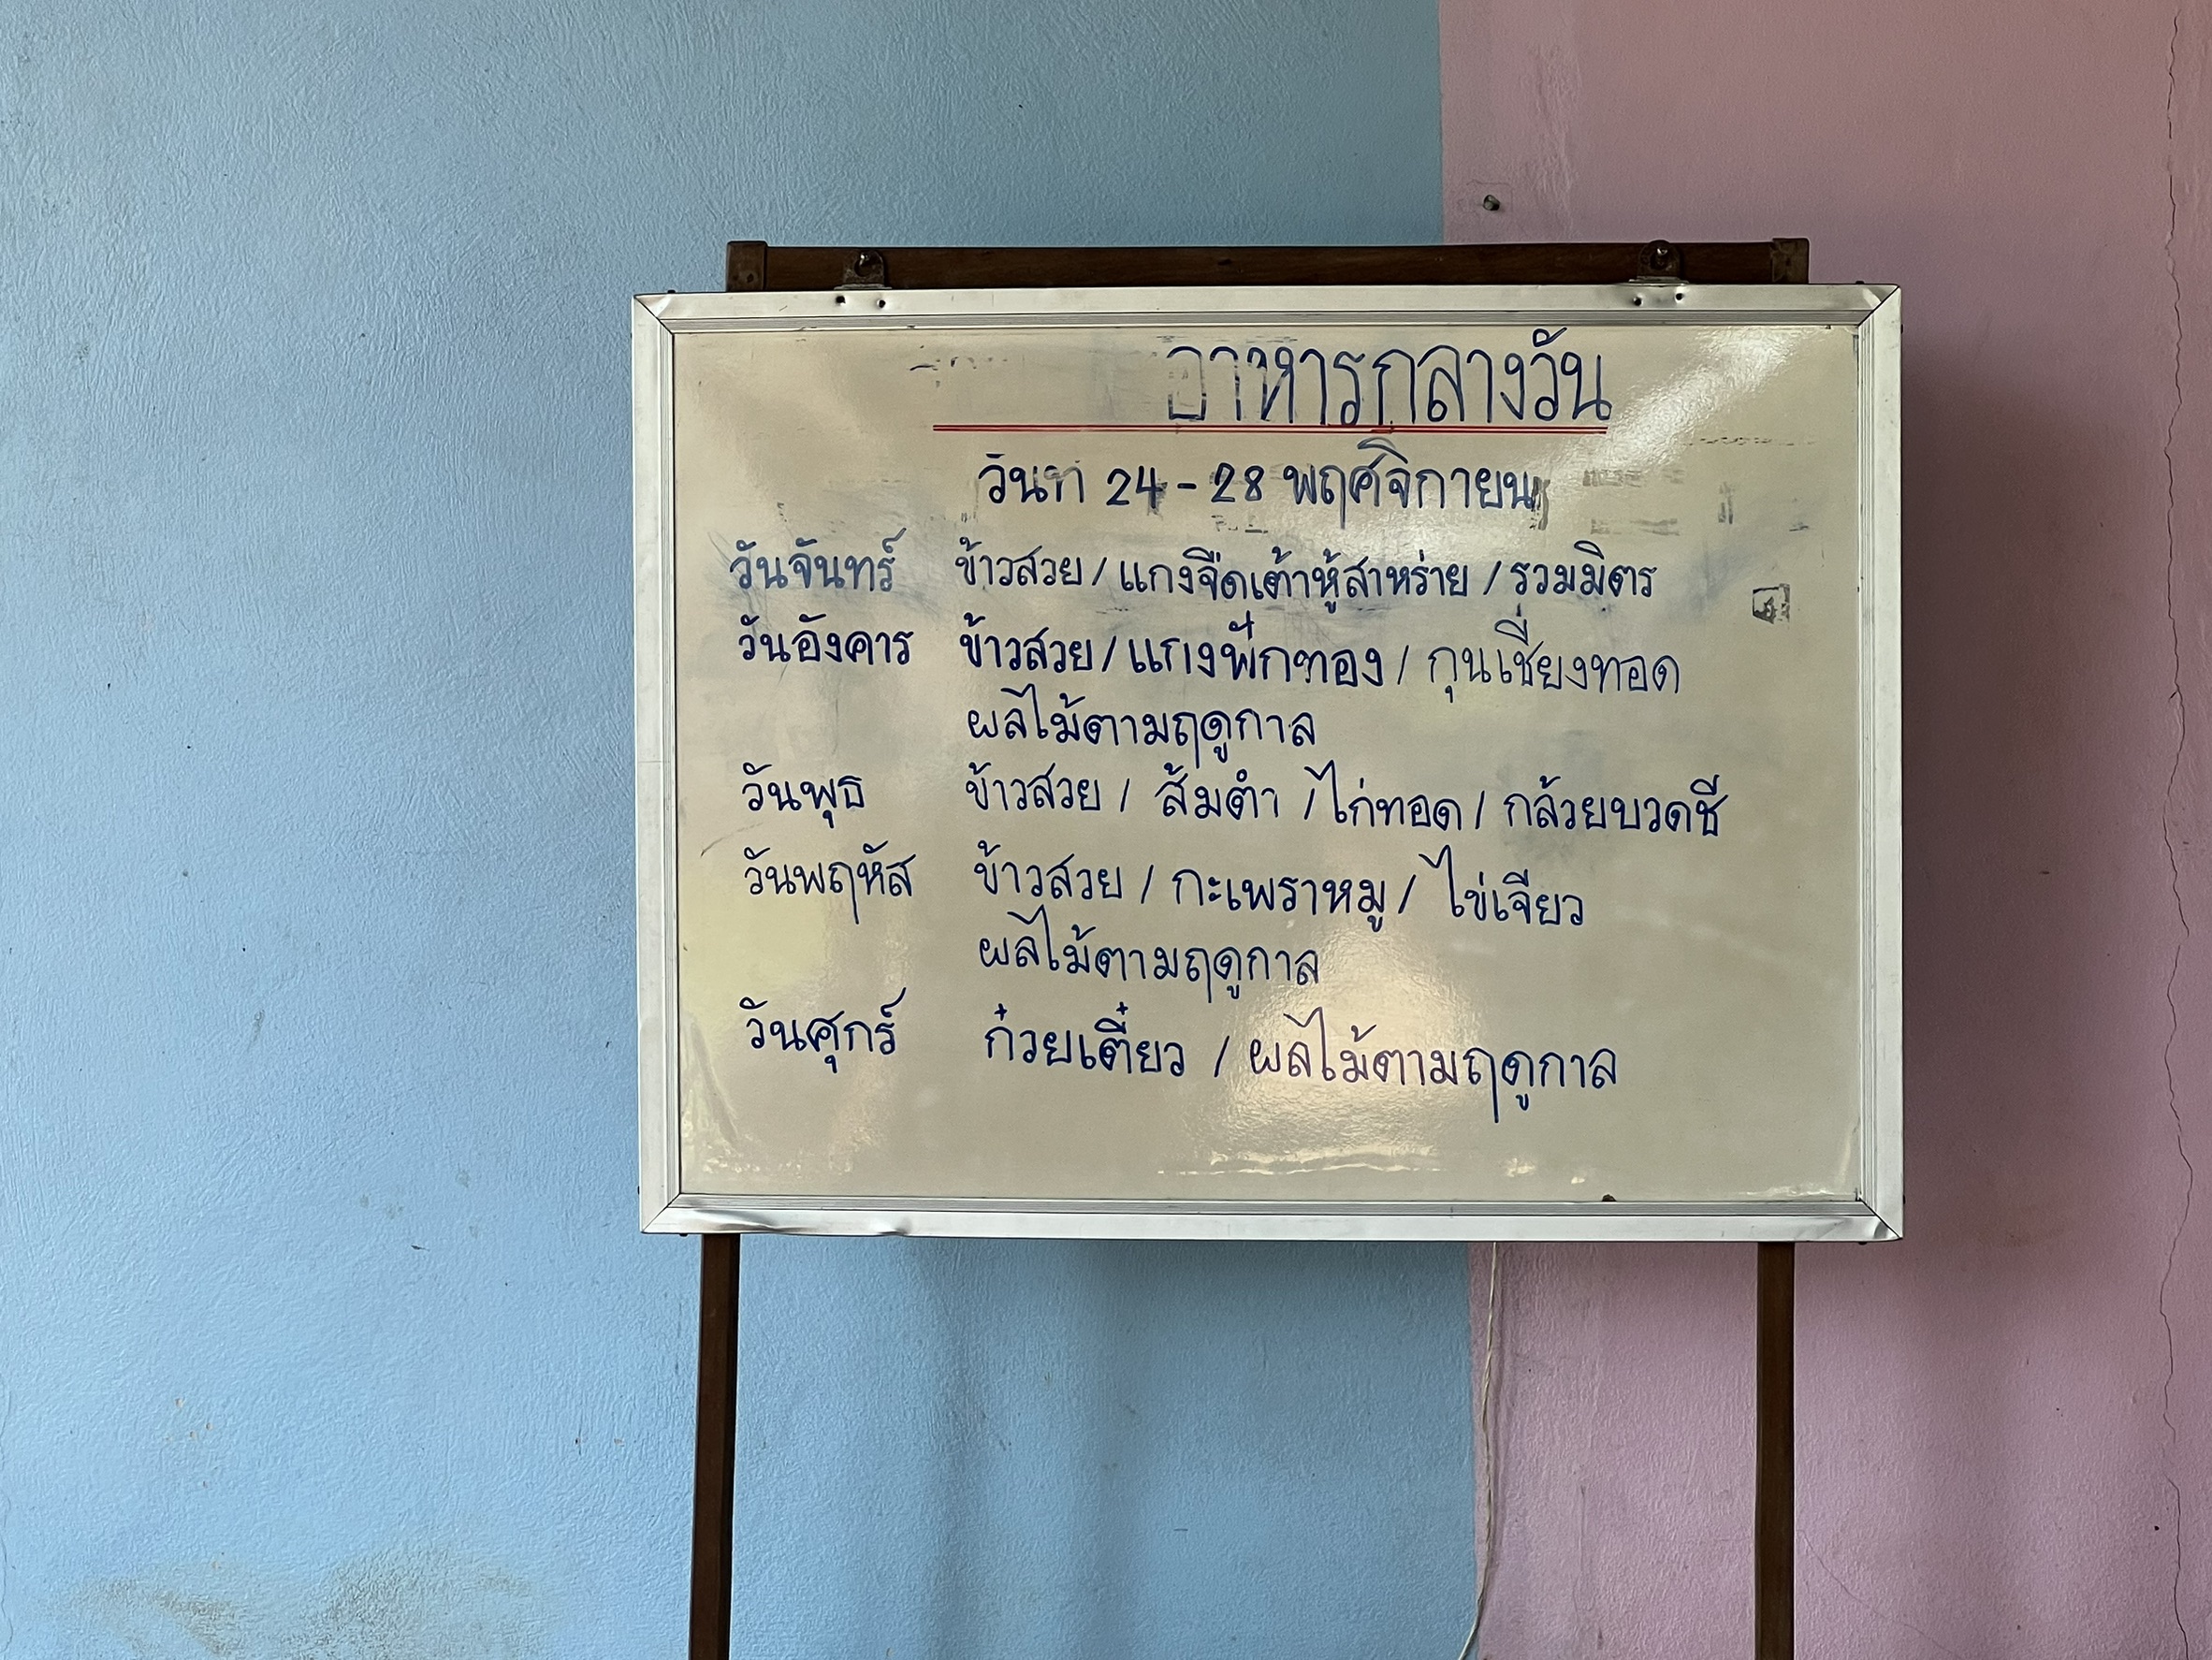 อาหารกลางวัน
วันที่ 24 - 28 พฤศจิกายน
วันจันทร์ ข้าวสวย / แกงจืดเต้าหู้สาหร่าย / รวมมิตร
วันอังคาร ข้าวสวย / แกงฟักทอง / กุนเชียงทอด
ผลไม้ตามฤดูกาล
วันพุธ ข้าวสวย / ส้มตำ / ไก่ทอด / กล้วยบวดชี
วันพฤหัส ข้าวสวย / กะเพราหมู / ไข่เจียว
ผลไม้ตามฤดูกาล
วันศุกร์ ก๋วยเตี๋ยว / ผลไม้ตามฤดูกาล